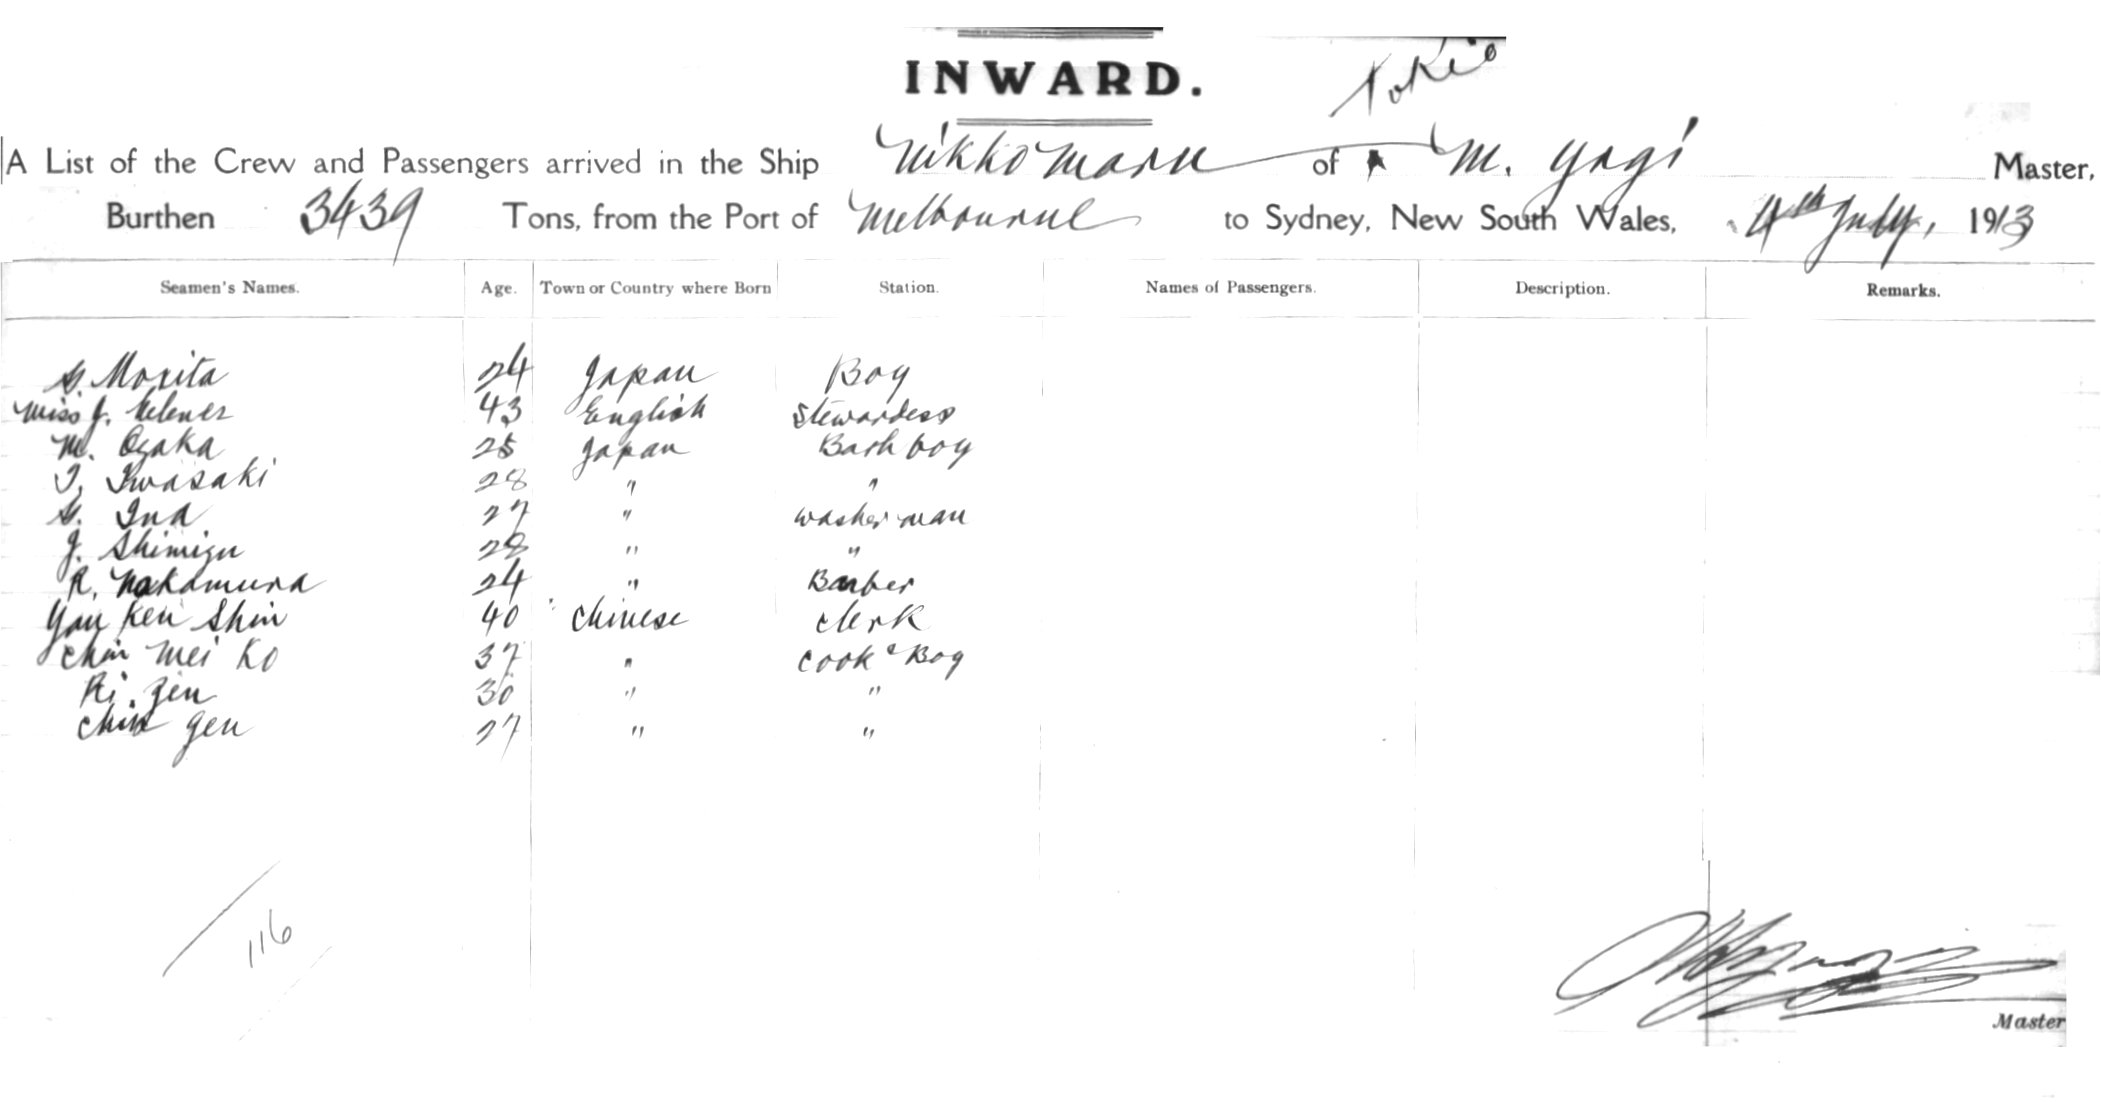 INWARD.
Tokio
A List of the Crew and Passengers arrived in the Ship Nikko Maru of M. Yagi Master,
Burthen 3439 Tons, from the Port of Melbourne to Sydney, New South Wales, 4th July, 1913
Seamen's Names. Age. Town or Country where Born Station. Names of Passengers. Description. Remarks.
S. Morita 24 Japan Boy
Miss J. 43 English Stewardess
M. Ozaka 25 Japan Bath boy
T. Iwasaki 28 " "
S. Ina 27 " washerman
J. Shimizu 28 " "
R. Nakamura 24 " Barber
Yau Ken Shin 40 Chinese Clerk
Chin Mei Ko 37 " Cook & Boy
Ri Zen 30 " "
Chin Gen 27 " "
116
Master